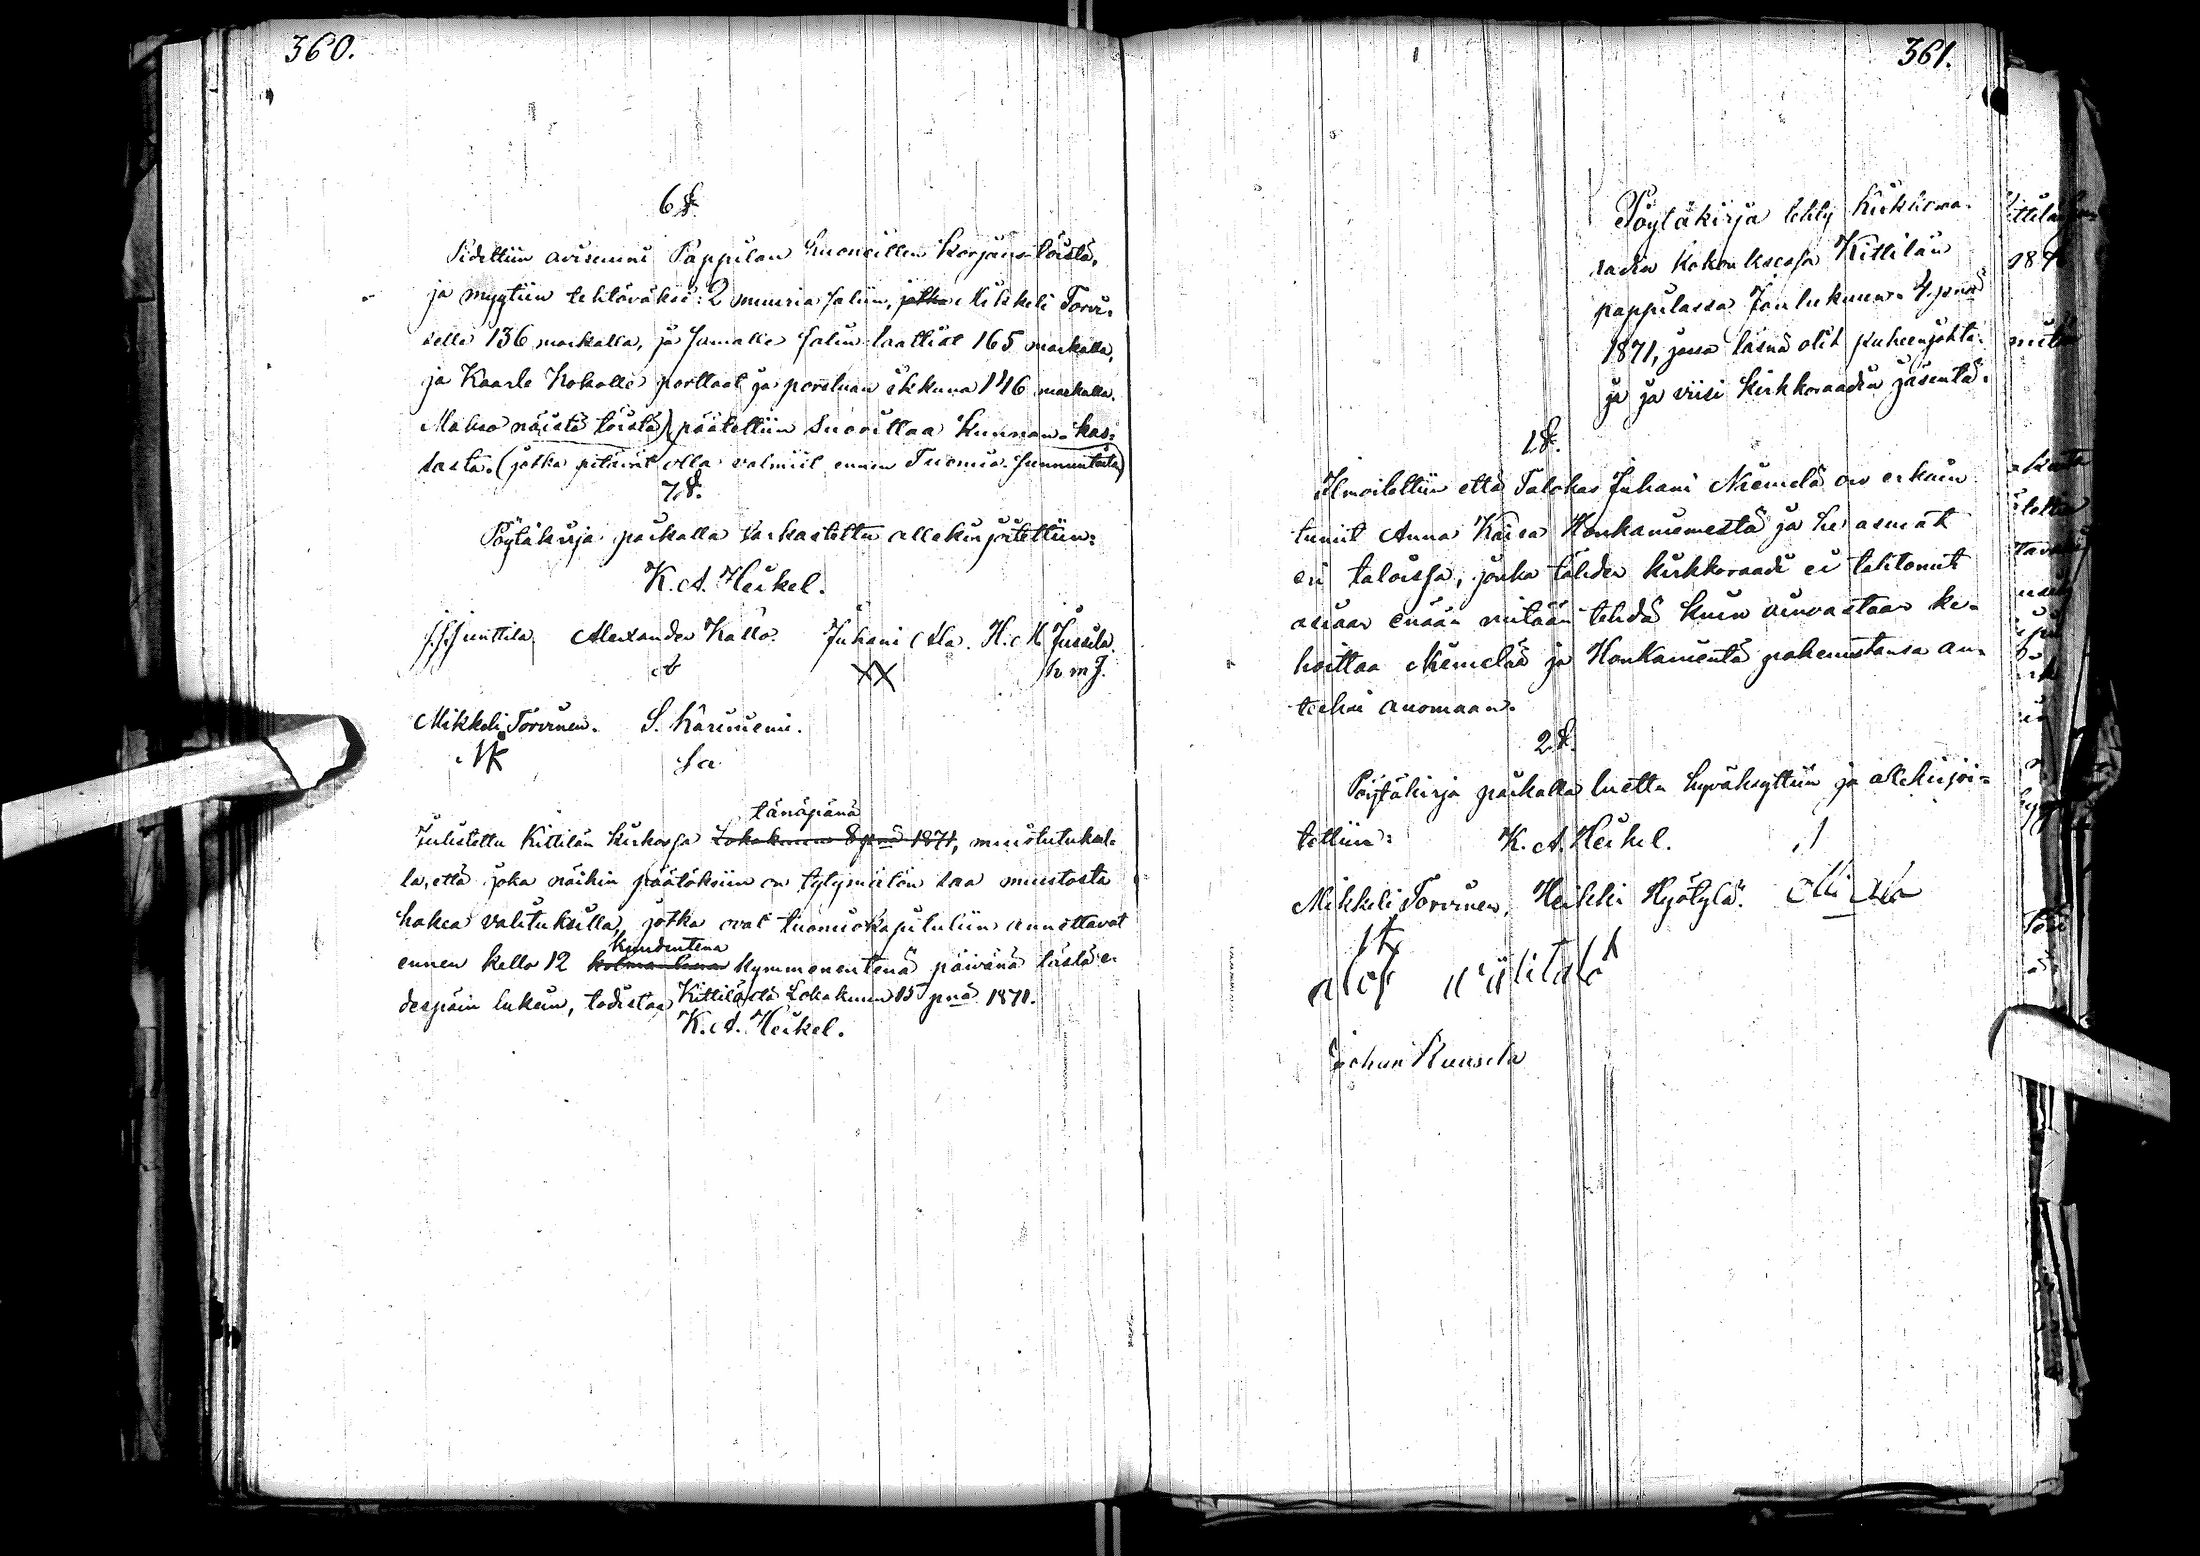 360.
6 §.
Pidettiin avisuuni Pappilan huoneillen korjaus töistä,
ja myytiin tehtäväksi: 2 muuria saliin, jotka Mikkeli Torvi-
selle 136 markalla, ja samalle salin laattiat 165 markalla,
ja Kaarle Kokolle porttaat ja porstuan ikkuna 146 markalla.
Makso näistä töistä) päätettiin suorittaa kunnan-kas-
sasta. (jotka pitäivät olla valmiit ennen Tuomio-sunnuntaita)
7 §.
Pöytäkirja paikalla tarkastettu allekirjoitettiin:
K. A. Heikel.
Junttila Alexander Kallo. Juhani Ala. H. M. Jussila.
XX h m J.
Mikkeli Torvinen. S. Käruniemi.
tänäpänä
Julistettu Kittilän kirkossa Lokakuun 8 pnä 1871, muistutuksel-
la, että joka näihin päätöksiin on tytymätön saa muutosta
hakea valituksilla, jotka ovat tuomiokapituliin annettavat
kuudentena
ennen kello 12 kolmantena kymmenentenä päivänä tästä e-
despäin lukein, todistaa Kittilästä Lokakuun 15 pnä 1871.
K. A. Heikel.
361.
Pöytäkirja tehty Kirkkoraa-
radin kokouksessa Kittilän
pappilassa Joulukuun 4 pnä
1871, jossa läsnä olit puheenjohta-
ja ja viisi kirkkoraadin jäsentä.
1 §.
Ilmoitettiin että Talokas Juhani Niemelä on erkain-
tunut Anna Kaisa Honkaniemestä ja he asuvat
eri taloissa, jonka tähden kirkkoraadi ei tahtonut
asiaan enään mitään tehdä kuin ainoastaan ke-
hoittaa Niemelää ja Honkanientä pahennustansa an-
teeksi anomaan.
2 §.
Pöytäkirja paikalla luettu hyväksyttiin ja allekirjoi-
tettiin: K. A. Heikel.
Mikkeli Torvinen. Heikki Hyötylä.
Johan Ruusela